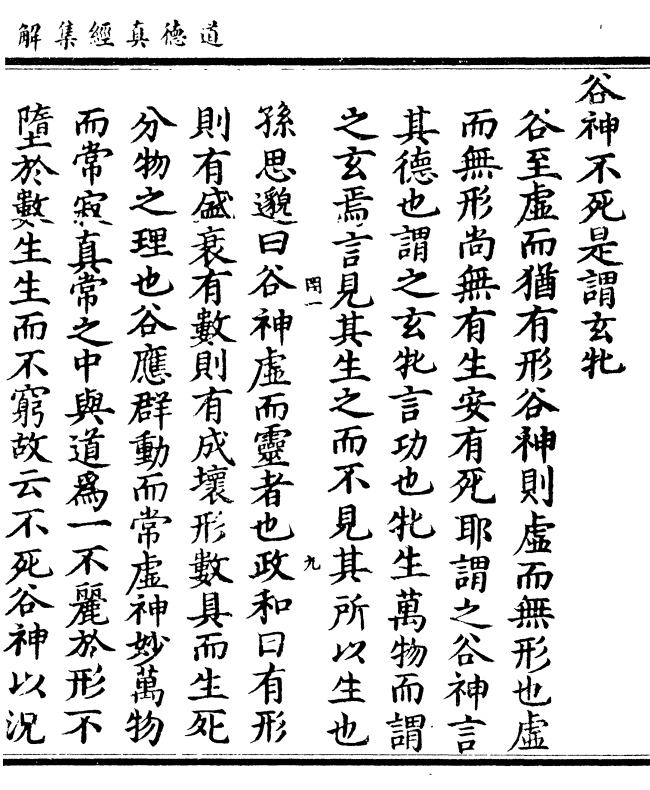 道德真經集解
谷神不死是謂玄牝
谷至虛而猶有形谷神則虛而無形也虛
而無形尚無有生安有死耶謂之谷神言
其德也謂之玄牝言功也牝生萬物而謂
之玄焉言見其生之而不見其所以生也
圉一
九
孫思邈曰谷神虛而靈者也政和曰有形
則有盛衰有數則有成壞形數具而生死
分物之理也谷應群動而常虛神妙萬物
而常寂真常之中與道爲一不麗於形不
墮於數生生而不窮故云不死谷神以況